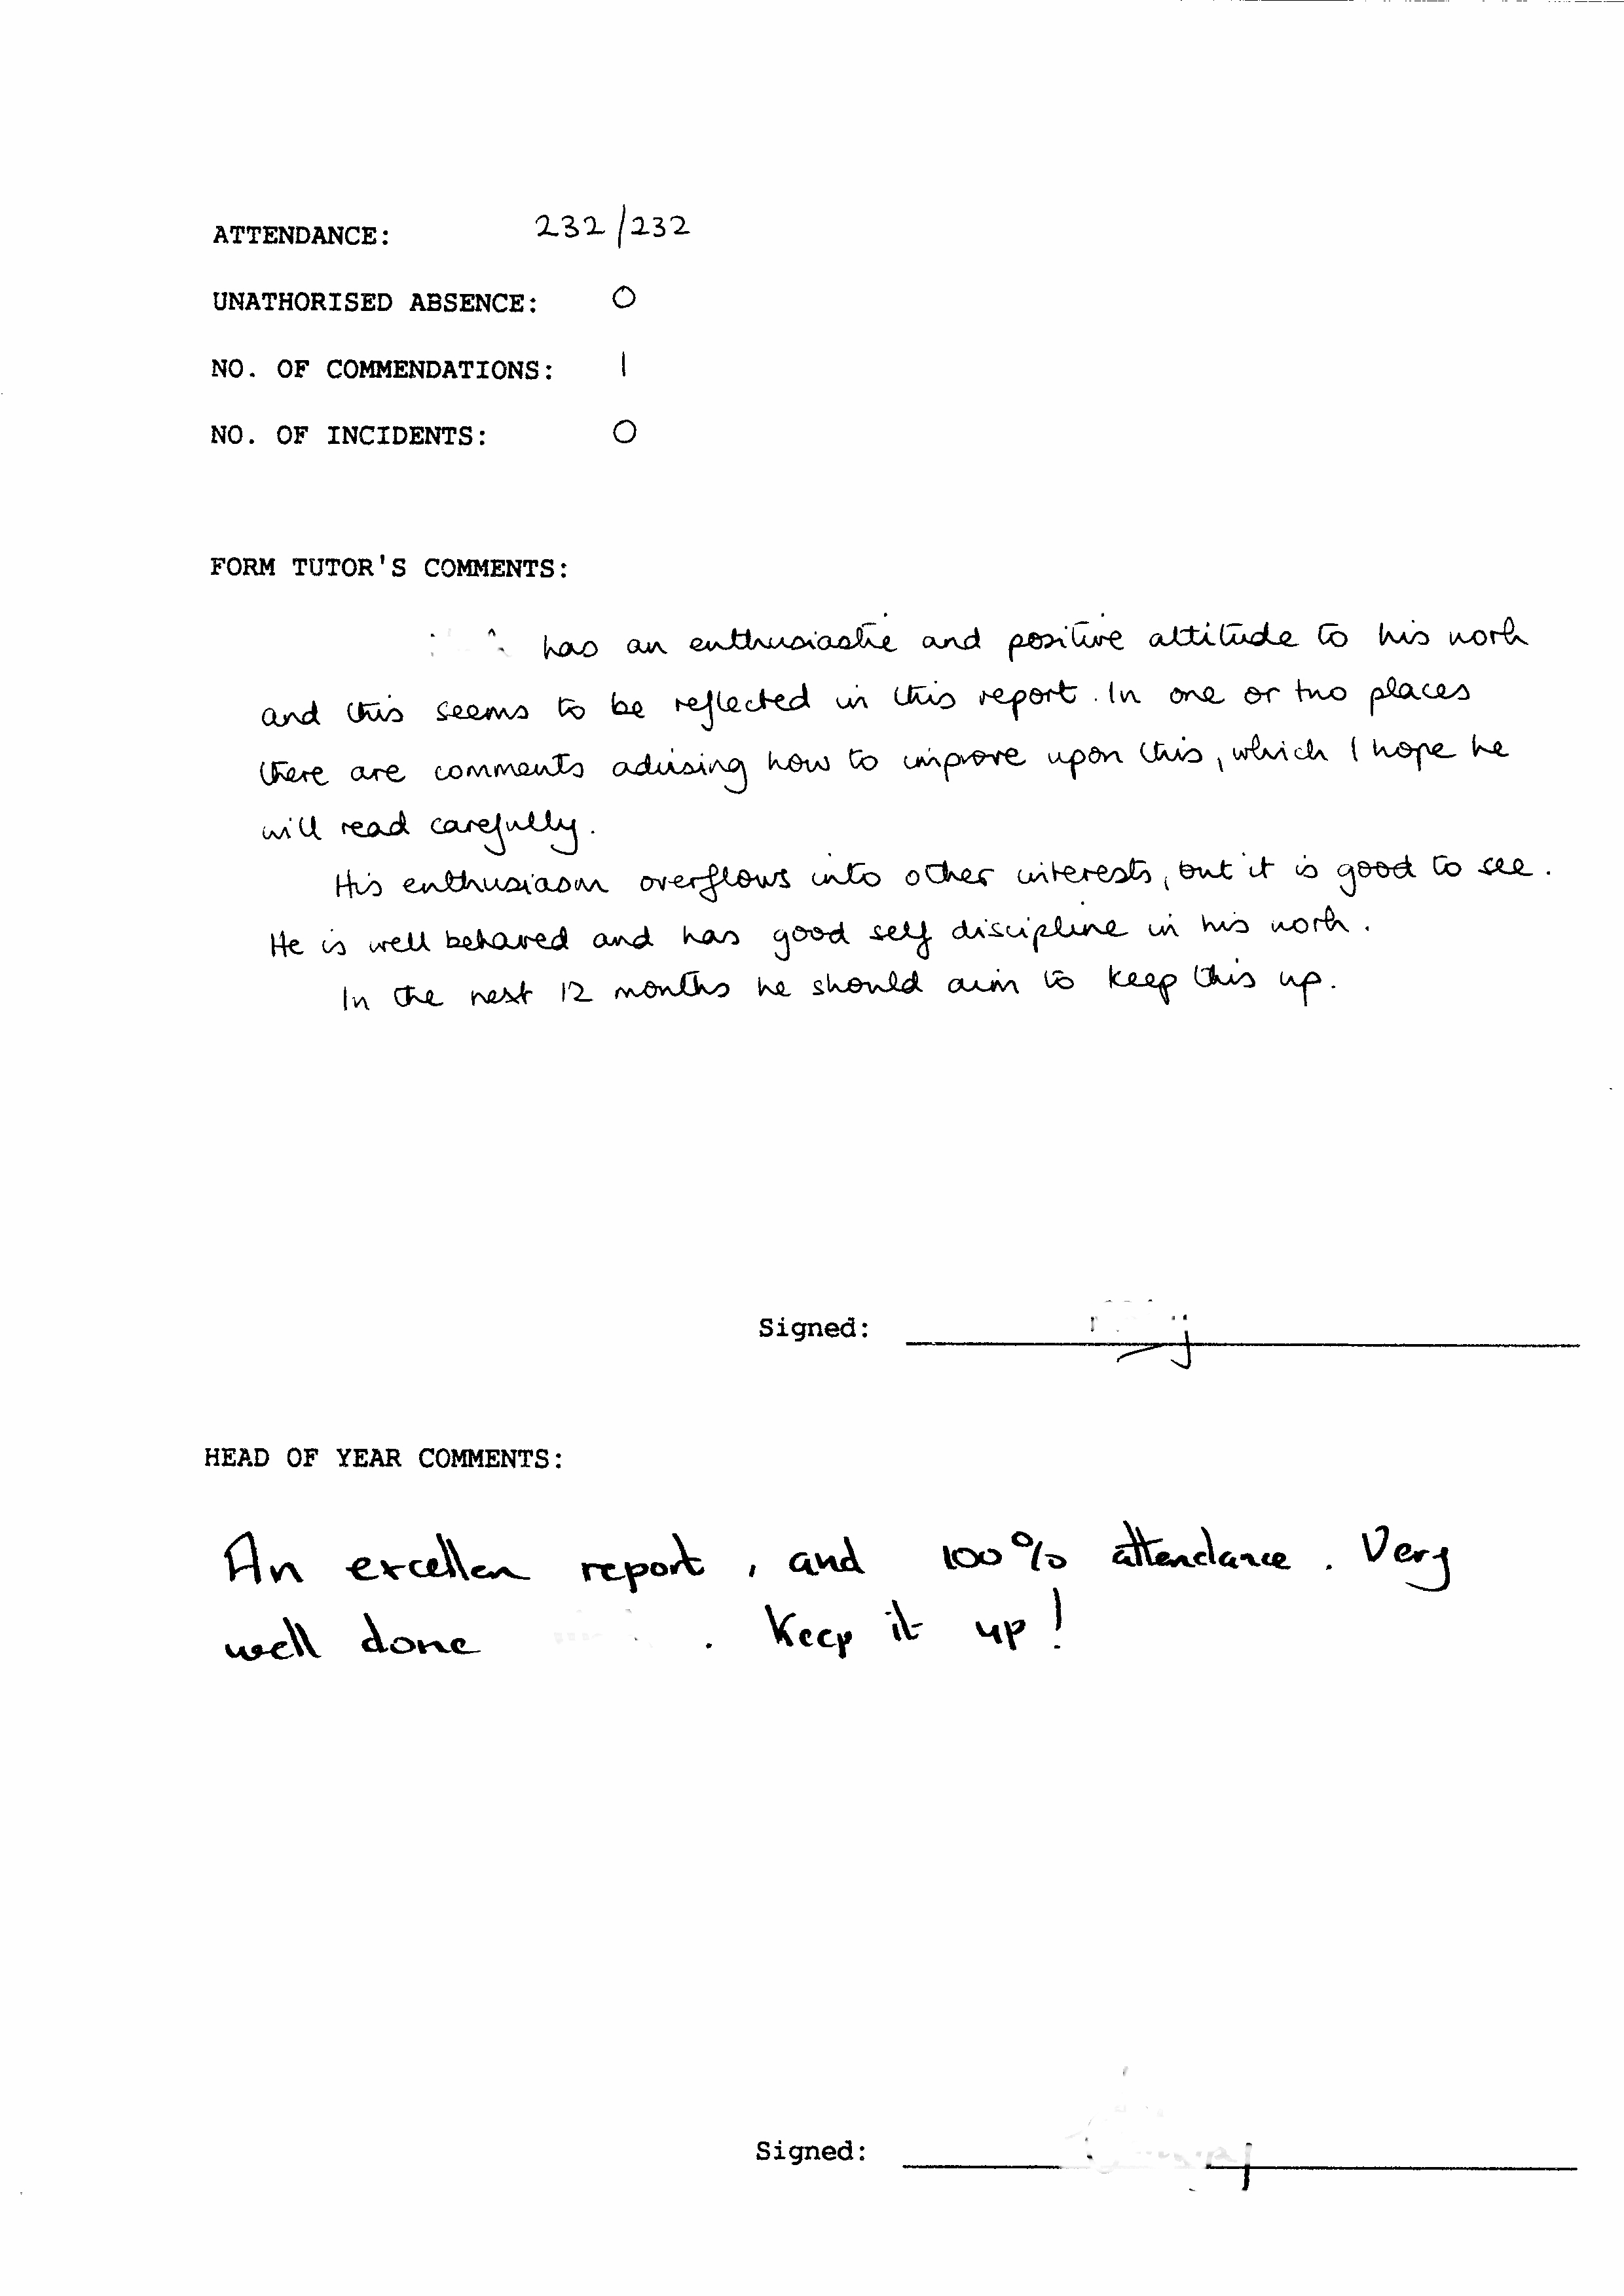 ATTENDANCE: 232/232
UNATHORISED ABSENCE: 0
NO. OF COMMENDATIONS: 1
NO. OF INCIDENTS: 0
FORM TUTOR'S COMMENTS:
has an enthusiastic and positive attitude to his work
and this seems to be reflected in this report. In one or two places
there are comments advising how to improve upon this, which I hope he
will read carefully.
His enthusiasm overflows into other interests, but it is good to see.
He is well behaved and has good self discipline in his work.
In the next 12 months he should aim to keep this up.
Signed:
HEAD OF YEAR COMMENTS:
An excellen report, and 100% attendance. Very
well done . Keep it up!
Signed: